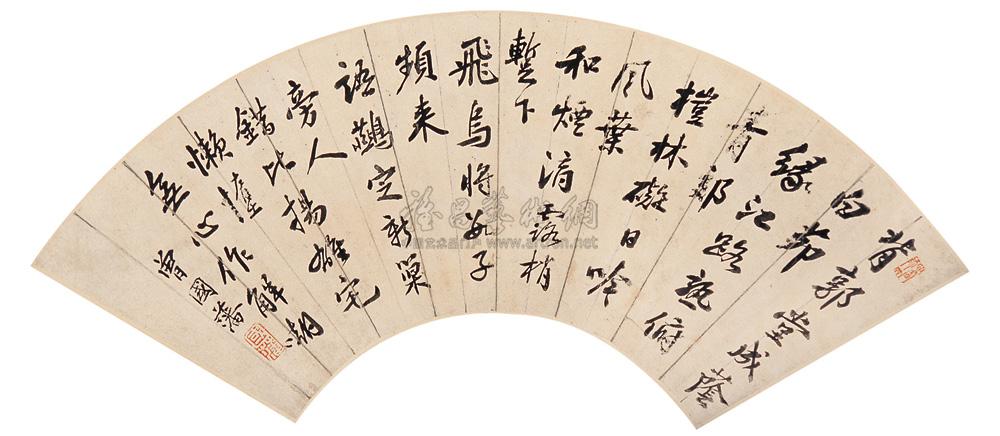 背郭堂成蔭
白茆
緣江路熟俯
青郊
榿林礙日吟
風葉
和煙滴露梢
暫下
飛烏將數子
頻來
語鷰定新巢
旁人
錯比揚雄宅
懶惰
無心作解嘲
曾國藩
雅昌藝術網